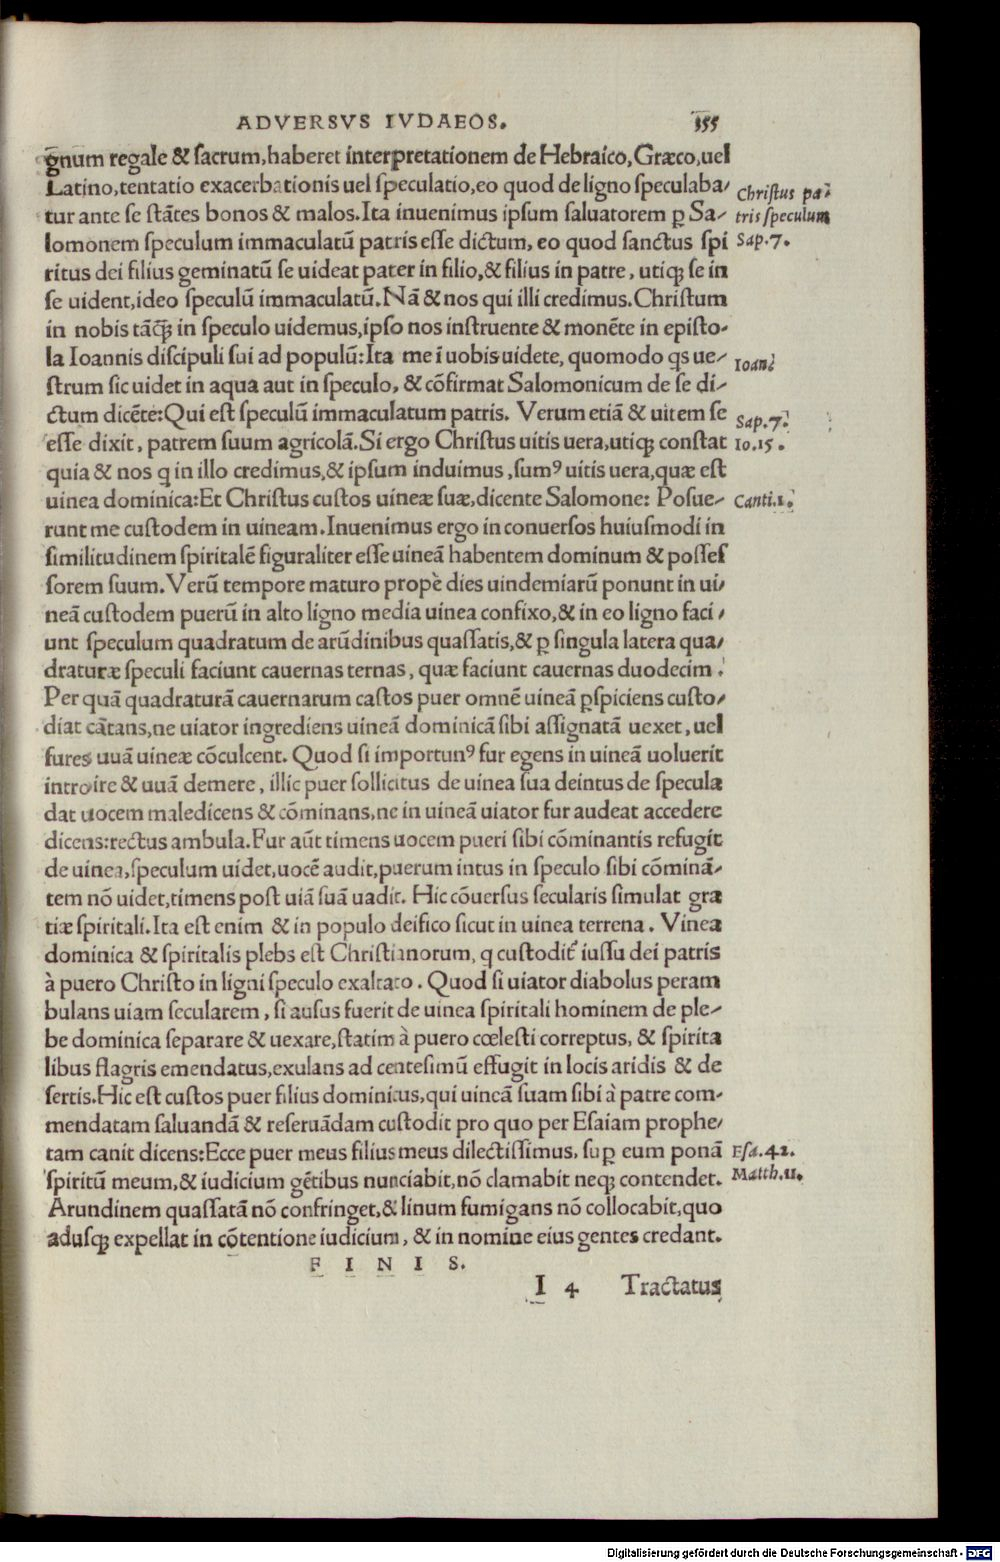 ADVERSVS IVDAEOS. 155
gnum regale & sacrum, haberet interpretationem de Hebraico, Græco, uel
Latino, tentatio exacerbationis uel speculatio, eo quod de ligno speculaba/
tur ante se stātes bonos & malos. Ita inuenimus ipsum saluatorem ꝑ Sa/
lomonem speculum immaculatū patris esse dictum, eo quod sanctus spi
ritus dei filius geminatū se uideat pater in filio, & filius in patre, utiqꝫ se in
se uident, ideo speculū immaculatū. Nā & nos qui illi credimus. Christum
in nobis tāqꝫ in speculo uidemus, ipso nos instruente & monēte in episto-
la Ioannis discipuli sui ad populū: Ita me ī uobis uidete, quomodo qs ue/
strum sic uidet in aqua aut in speculo, & cōfirmat Salomonicum de se di/
ctum dicēte: Qui est speculū immaculatum patris. Verum etiā & uitem se
esse dixit, patrem suum agricolā. Si ergo Christus uitis uera, utiqꝫ constat
quia & nos q in illo credimus, & ipsum induimus, sumꝰ uitis uera, quæ est
uinea dominica: Et Christus custos uineæ suæ, dicente Salomone: Posue/
runt me custodem in uineam. Inuenimus ergo in conuersos huiusmodi in
similitudinem spiritalē figuraliter esse uineā habentem dominum & posses
sorem suum. Verū tempore maturo propè dies uindemiarū ponunt in ui/
neā custodem puerū in alto ligno media uinea confixo, & in eo ligno faci/
unt speculum quadratum de arūdinibus quassatis, & ꝑ singula latera qua/
draturæ speculi faciunt cauernas ternas, quæ faciunt cauernas duodecim.
Per quā quadraturā cauernarum castos puer omnē uineā ꝑspiciens custo/
diat cātans, ne uiator ingrediens uineā dominicā sibi assignatā uexet, uel
fures uuā uineæ cōculcent. Quod si importunꝰ fur egens in uineā uoluerit
introire & uuā demere, illic puer sollicitus de uinea sua deintus de specula
dat uocem maledicens & cōminans, ne in uineā uiator fur audeat accedere
dicens: rectus ambula. Fur aūt timens uocem pueri sibi cōminantis refugit
de uinea, speculum uidet, uocē audit, puerum intus in speculo sibi cōminā-
tem nō uidet, timens post uiā suā uadit. Hic cōuersus secularis simulat gra
tiæ spiritali. Ita est enim & in populo deifico sicut in uinea terrena. Vinea
dominica & spiritalis plebs est Christianorum, q custodit̃ iussu dei patris
à puero Christo in ligni speculo exaltato. Quod si uiator diabolus peram
bulans uiam secularem, si ausus fuerit de uinea spiritali hominem de ple/
be dominica separare & uexare, statim à puero cœlesti correptus, & spirita
libus flagris emendatus, exulans ad centesimū effugit in locis aridis & de
sertis. Hic est custos puer filius dominicus, qui uineā suam sibi à patre com-
mendatam saluandā & reseruādam custodit pro quo per Esaiam prophe/
tam canit dicens: Ecce puer meus filius meus dilectissimus, suꝑ eum ponā
spiritū meum, & iudicium gētibus nunciabit, nō clamabit neqꝫ contendet.
Arundinem quassatā nō confringet, & linum fumigans nō collocabit, quo
adusqꝫ expellat in cōtentione iudicium, & in nomine eius gentes credant.
F I N I S.
I 4 Tractatus
Christus pa-
tris speculum
Sap. 7.
Ioan.
Sap. 7.
Io. 15.
Canti. 1.
Esa. 42.
Matth. 11.
Digitalisierung gefördert durch die Deutsche Forschungsgemeinschaft - DFG